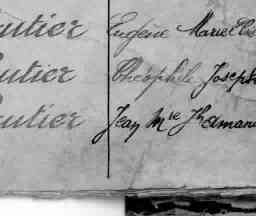 utier Eugène Marie
utier Théophile Joseph
utier Jean Mie Jh Amand